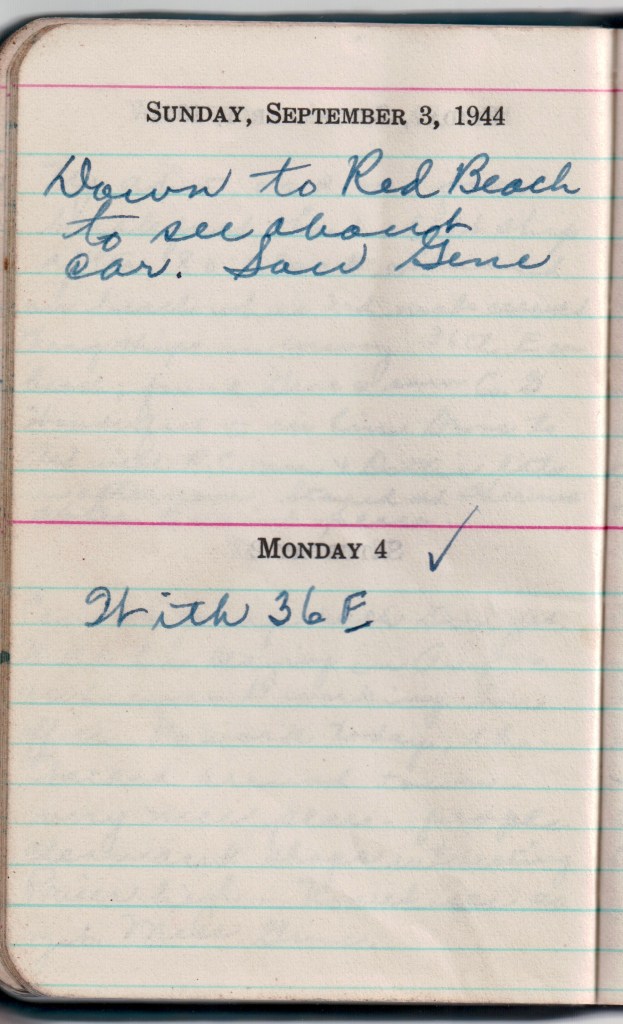 SUNDAY, SEPTEMBER 3, 1944
Down to Red Beach
to see about
car. Saw Gene
MONDAY 4 ✓
With 36 E